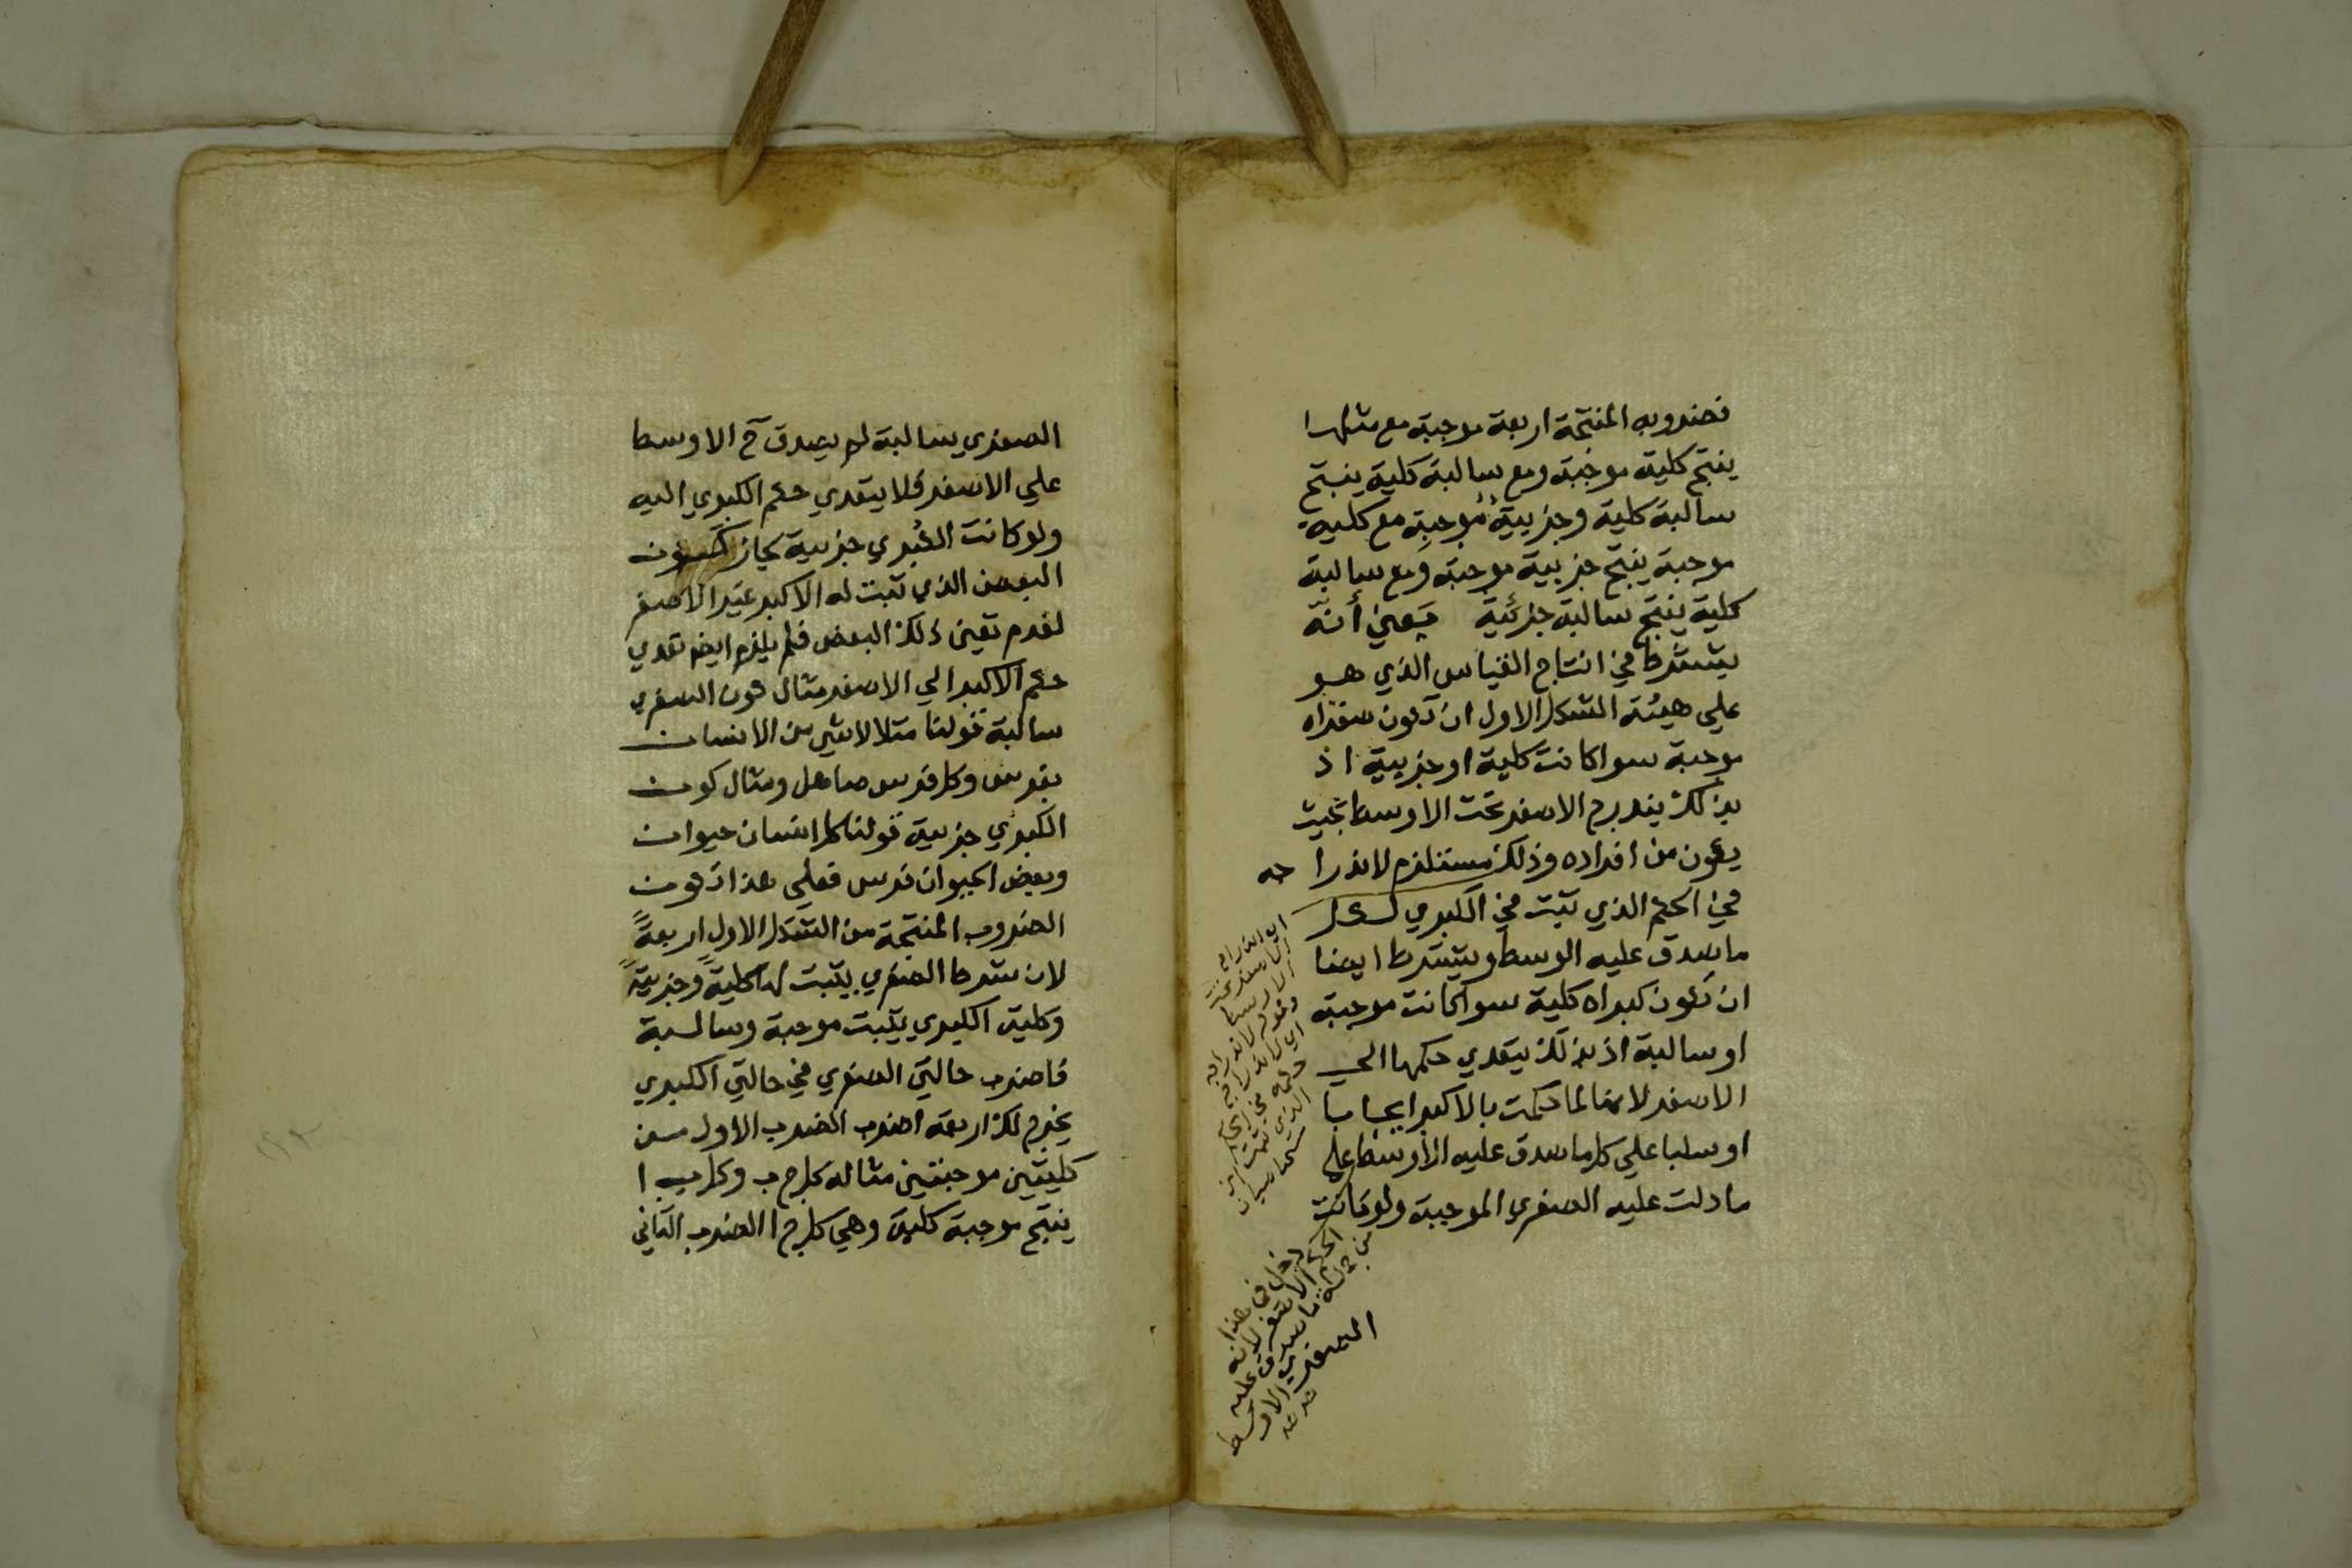 فضروبه المنتجة اربعة موجبة مع مثلها
ينتج كلية موجبة ومع سالبة كلية ينتج
سالبة كلية وجزيية موجبة مع كلية
موجبة ينتج جزيية موجبة ومع سالبة
كلية ينتج سالبة جزئية يعني أنه
يشترط في انتاج القياس الذي هو
علي هيئة الشكل الاول ان تكون صغراه
موجبة سوا كانت كلية او جزيية اذ
بذلك يندرج الاصغر تحت الاوسط بحيث
يكون من افراده وذلك مستلزم لاندرا جه
في الحكم الذي ثبت في الكبري لكل
ما صدق عليه الوسط ويشترط ايضا
ان تكون كبراه كلية سوا كانت موجبة
او سالبة اذ بذلك يتعدي حكمها الي
الاصغر لانها لما حكمت بالاكبر ايجابا
او سلبا علي كل ما صدق عليه الاوسط علي
ما دلت عليه الصغري الموجبة ولو كانت
اي اندراج
الاصغر تحت
الاوسط
وقوله لاندراجه
اي لاندراج
حكمه في الحكم
الذي ثبت
دخل في هذا
الحكم الاصغر لانه
من جملة ما صدق عليه
الاوسط
الصغري
الصغري سالبة لم يصدق ح الاوسط
علي الاصغر فلا يتعدي حكم الكبري اليه
ولو كانت الكبري جزيية لجاز كون
البعض الذي ثبت له الاكبر غير الاصغر
لعدم تعين ذلك البعض فلم يلزم ايضا تعدي
حكم الاكبر الي الاصغر مثال كون الصغري
سالبة قولنا مثلا لا شي من الانسان
بفرس وكل فرس صاهل ومثال كون
الكبري جزيية قولنا كل انسان حيوان
وبعض الحيوان فرس فعلي هذا تكون
الضروب المنتجة من الشكل الاول اربعةً
لان شرط الصغري يثبت لها كليةً وجزييةً
وكلية الكبري يثبت موجبة وسالبة
فاضرب حالتي الصغري في حالتي الكبري
يخرج لك اربعة اضرب الضرب الاول من
كليتين موجبتين مثاله كل ج ب وكل ب ا
ينتج موجبة كلية وهي كل ج ا الضرب الثاني